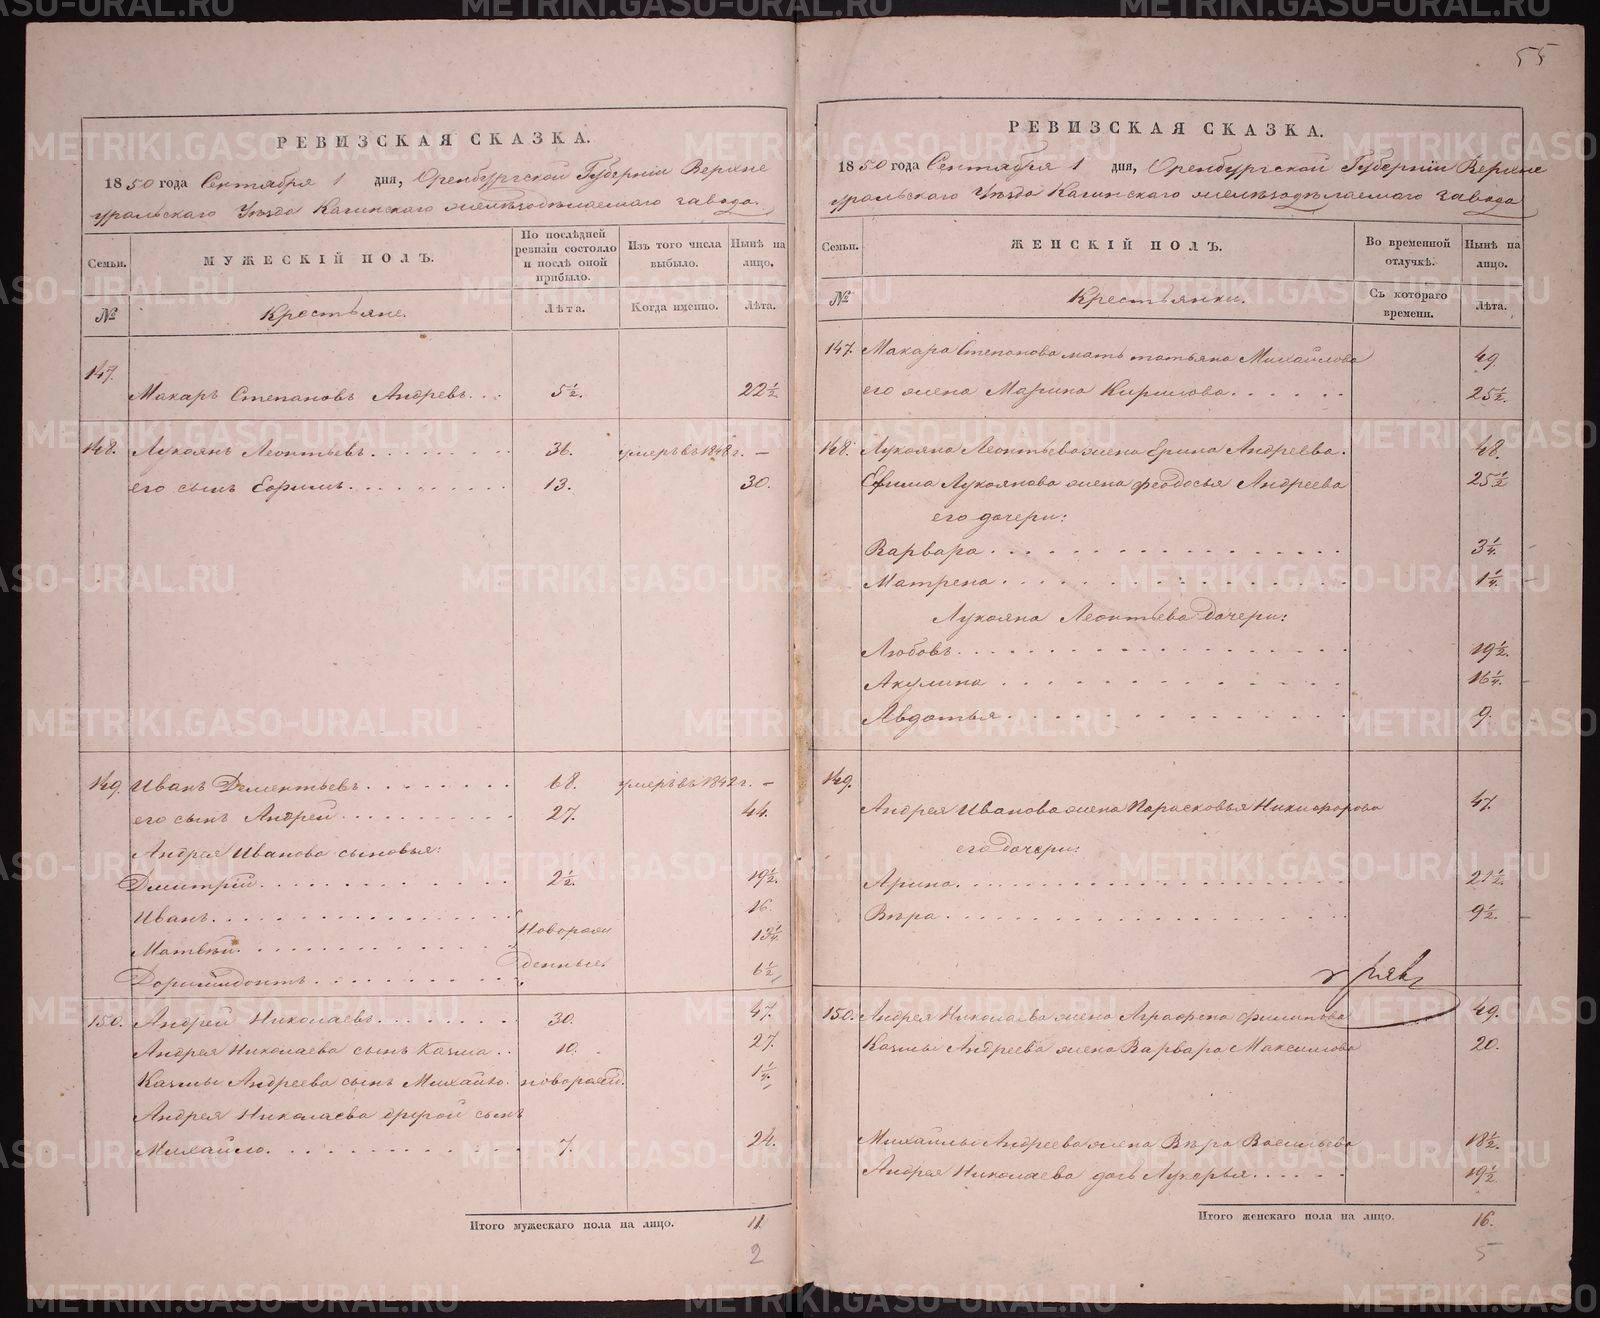 55
РЕВИЗСКАЯ СКАЗКА.
1850 года Сентября 1 дня, Оренбургской Губерніи Верхне
уральскаго Уѣзда Кагинскаго желѣзодѣлаемаго завода.
Семьи.
МУЖЕСКІЙ ПОЛЪ.
По послѣдней
ревизіи состояло
и послѣ оной
прибыло.
Изъ того числа
выбыло.
Нынѣ на
лицо.
№
Крестьяне.
Лѣта.
Когда именно.
Лѣта.
147.
Макаръ Степановъ Андревъ. . . 5½. 22½
148. Лукоянъ Леонтьевъ. 36. умеръ въ 1848 г. –
его сынъ Ефимъ. 13. 30.
149. Иванъ Дементьевъ. 68. умеръ въ 1842 г. –
его сынъ Андрей 27. 44.
Андрея Иванова сыновья:
Дмитрій. 2½. 19½.
Иванъ. 16.
Новорож
Матвѣй. 13¼
денные.
Доримидонтъ. 6½
150. Андрей Николаевъ. 30. 47.
Андрея Николаева сынъ Козма. . 10. 27.
Козмы Андреева сынъ Михайло. новорожд. 1¼.
Андрея Николаева другой сынъ
Михайло. 7. 24.
Итого мужескаго пола на лицо. 11.
2
РЕВИЗСКАЯ СКАЗКА.
1850 года Сентября 1 дня, Оренбургской Губерніи Верхне
уральскаго Уѣзда Кагинскаго желѣзодѣлаемаго завода
Семьи.
ЖЕНСКІЙ ПОЛЪ.
Во временной
отлучкѣ.
Нынѣ на
лицо.
№
Крестьянки.
Съ котораго
времени.
Лѣта.
147. Макара Степанова мать татьяна Михайлова 49.
его жена Марина Кирилова. 25½.
148. Лукояна Леонтьева жена Ерина Андреева. 48.
Ефима Лукоянова жена феодосья Андреева 25½
его дочери:
Варвара. 3¼.
Матрена. 1¼.
Лукояна Леонтьева дочери:
Любовь. 19½.
Акулина 16¼.
Авдотья 9.
149.
Андрея Иванова жена Парасковья Никифорова 47.
его дочери:
Арина. 21½.
Вѣра. 9½.
150. Андрея Николаева жена Аграфена филипова 49.
Козмы Андреева жена Варвара Максимова 20.
Михайлы Андреева жена Вѣра Васильева 18½.
Андрея Николаева дочь Лукерья. 19½
Итого женскаго пола на лицо. 16.
5
METRIKI.GASO-URAL.RU